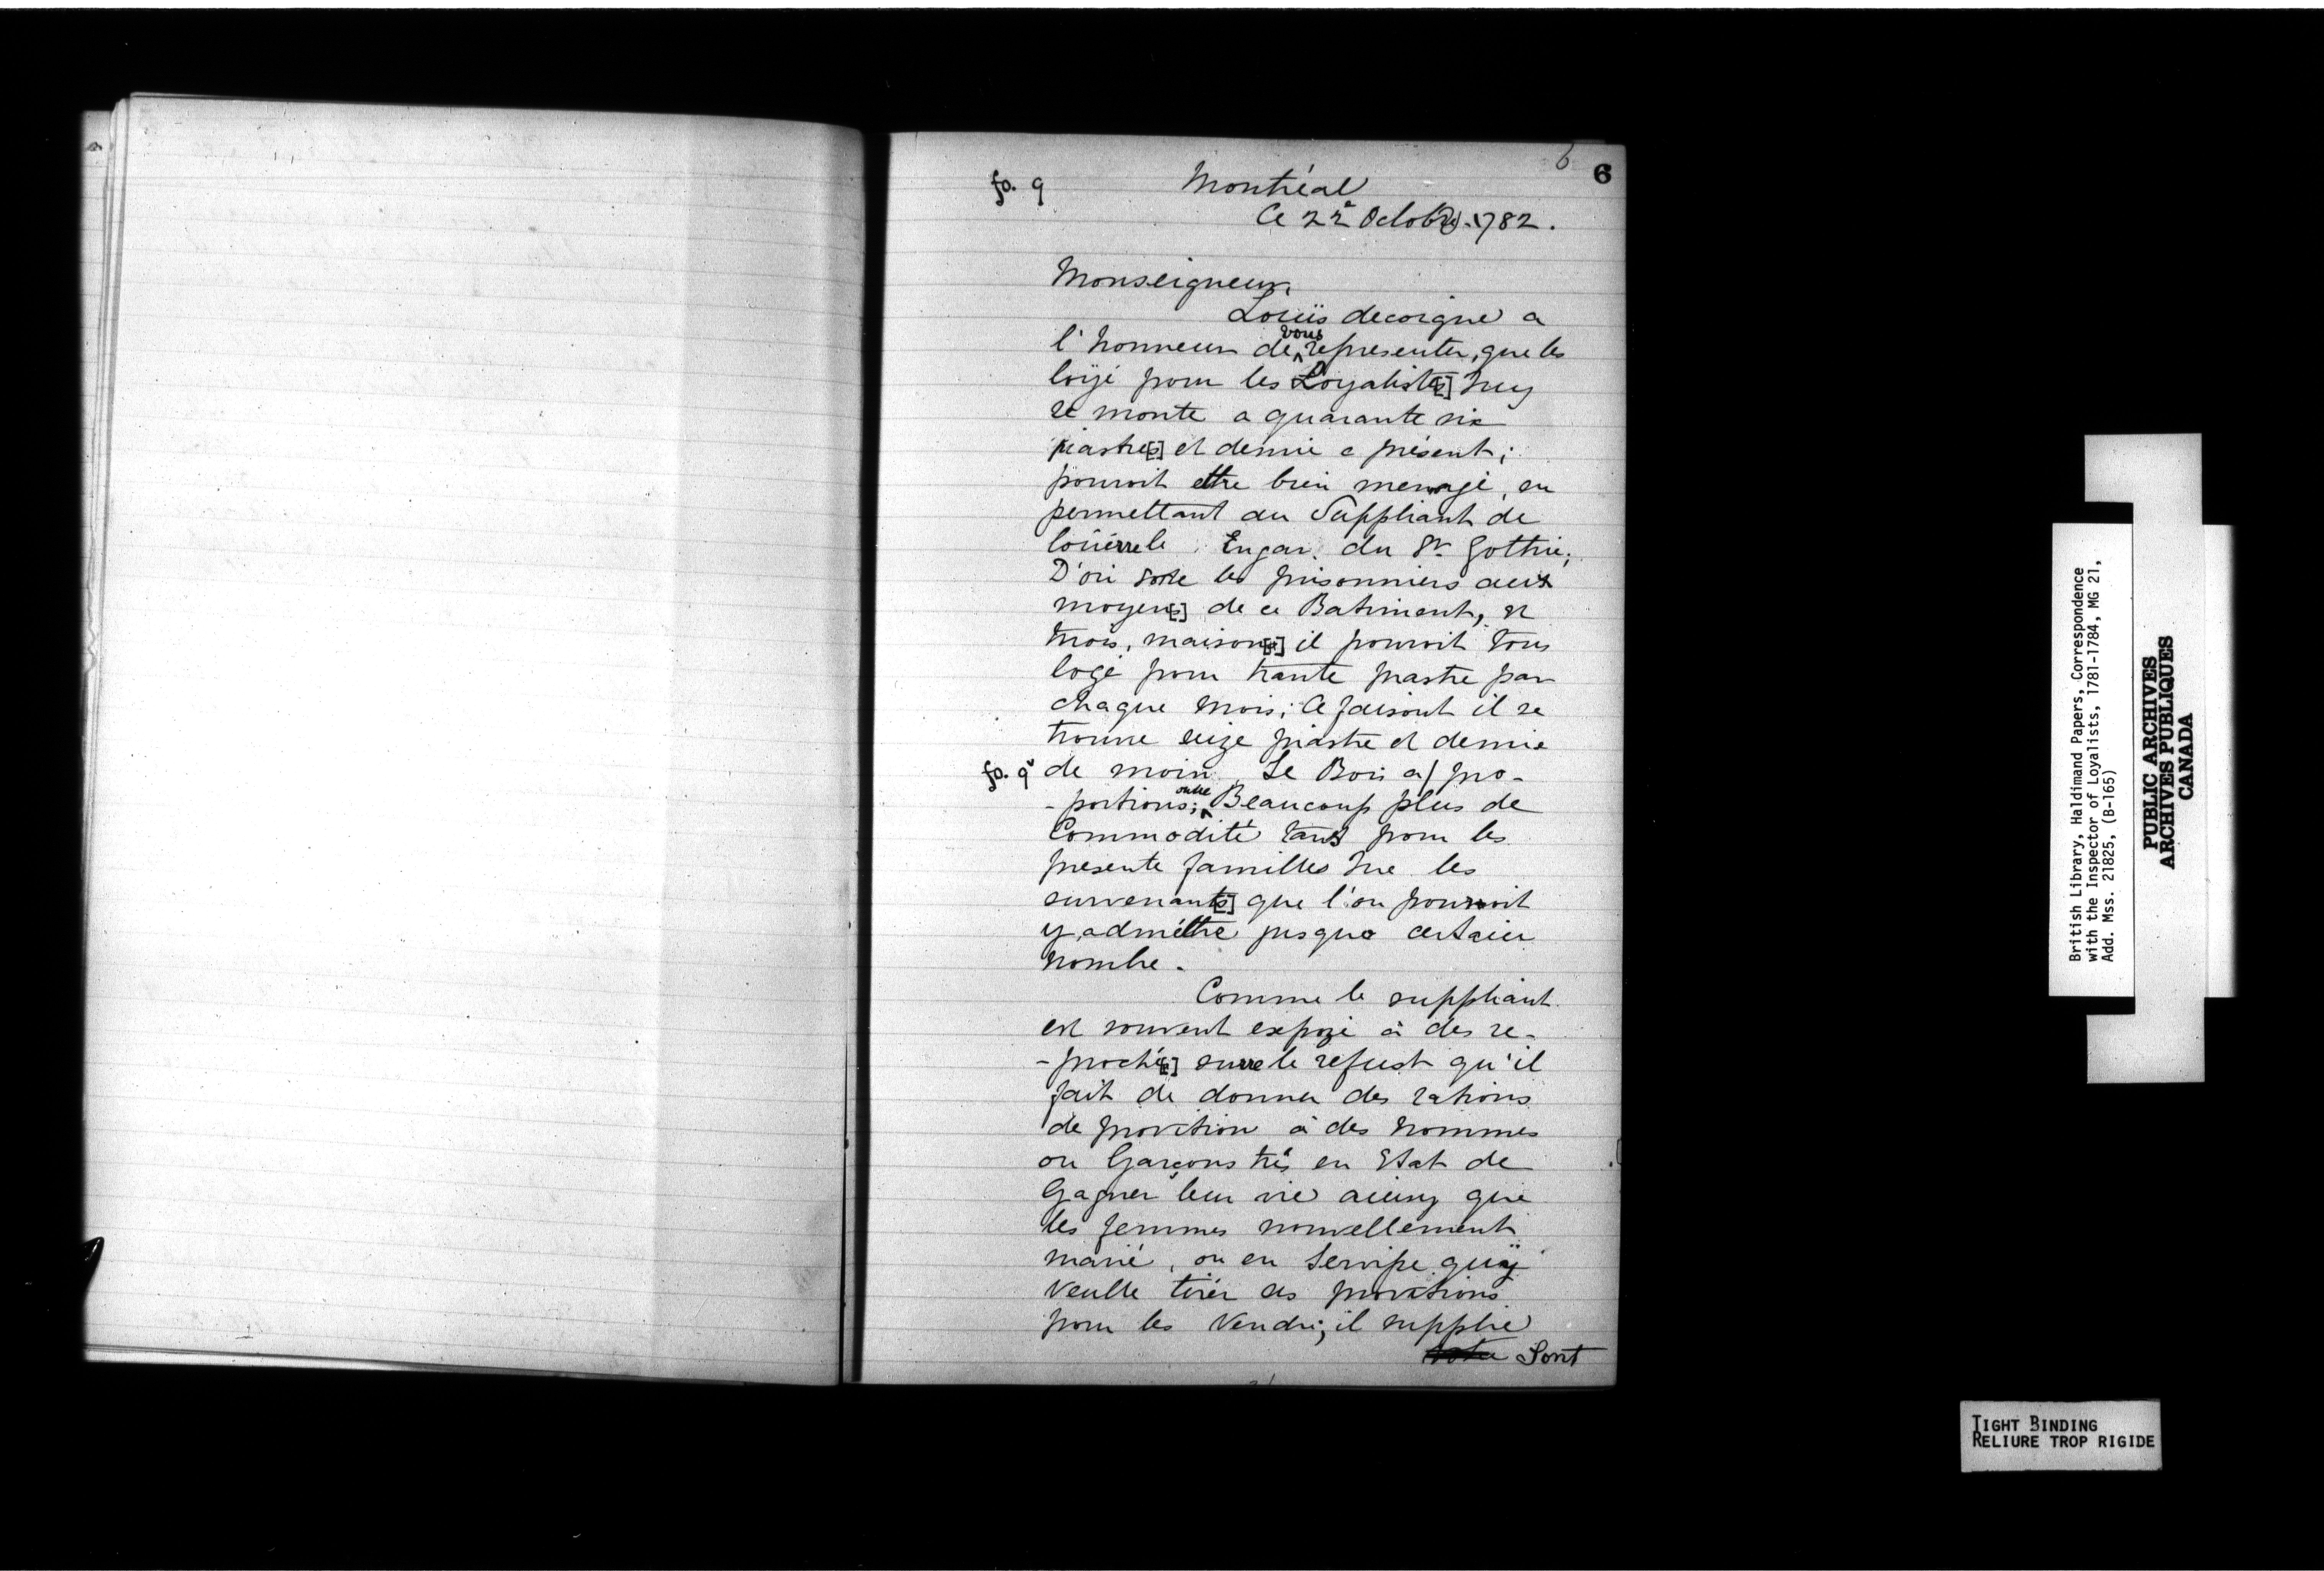 6
6
fo. 9 Montréal
Ce 22e Octobre 1782.
Monseigneur
Loüis decoigne a
l'honneur de vous representer, que les
loÿé pour les Loyalistes[] Icy
se monte a quarante six
piastres[] et demie a présent;
pouroit ettre bien menagé, en
permettant au Suppliant de
loüerre le Engar du Sr Gottrie;
D'ou sorte les prisonniers aux
moyens[] de ce Batiment, et
trois, maisons[] il pouroit tous
logé pour trante piastre par
chaque mois; Ce faisont il se
trouve seize piastre et demie
fo. 9v de moin, Le Bois a/ pro-
-portions; outre Beaucoup plus de
Commodité tans pour les
presente familles que les
survenants[] que l'on pouroit
y, admettre jusqua certain
nombre.
Comme le suppliant
est souvent expozé à des re-
-proché[] surre le refust qu'il
fait de donner des rations
de provition à des hommes
ou Garçons très en Etat de
Gagner leur vie aiensy que
les femmes nouvellement
marié, ou en Servise quÿ
veulle tirér des provitions
pour les Vendre; il supplie
Sont
British Library, Haldimand Papers, Correspondence
with the Inspector of Loyalists, 1781-1784, MG 21,
Add. Mss. 21825, (B-165)
PUBLIC ARCHIVES
ARCHIVES PUBLIQUES
CANADA
TIGHT BINDING
RELIURE TROP RIGIDE